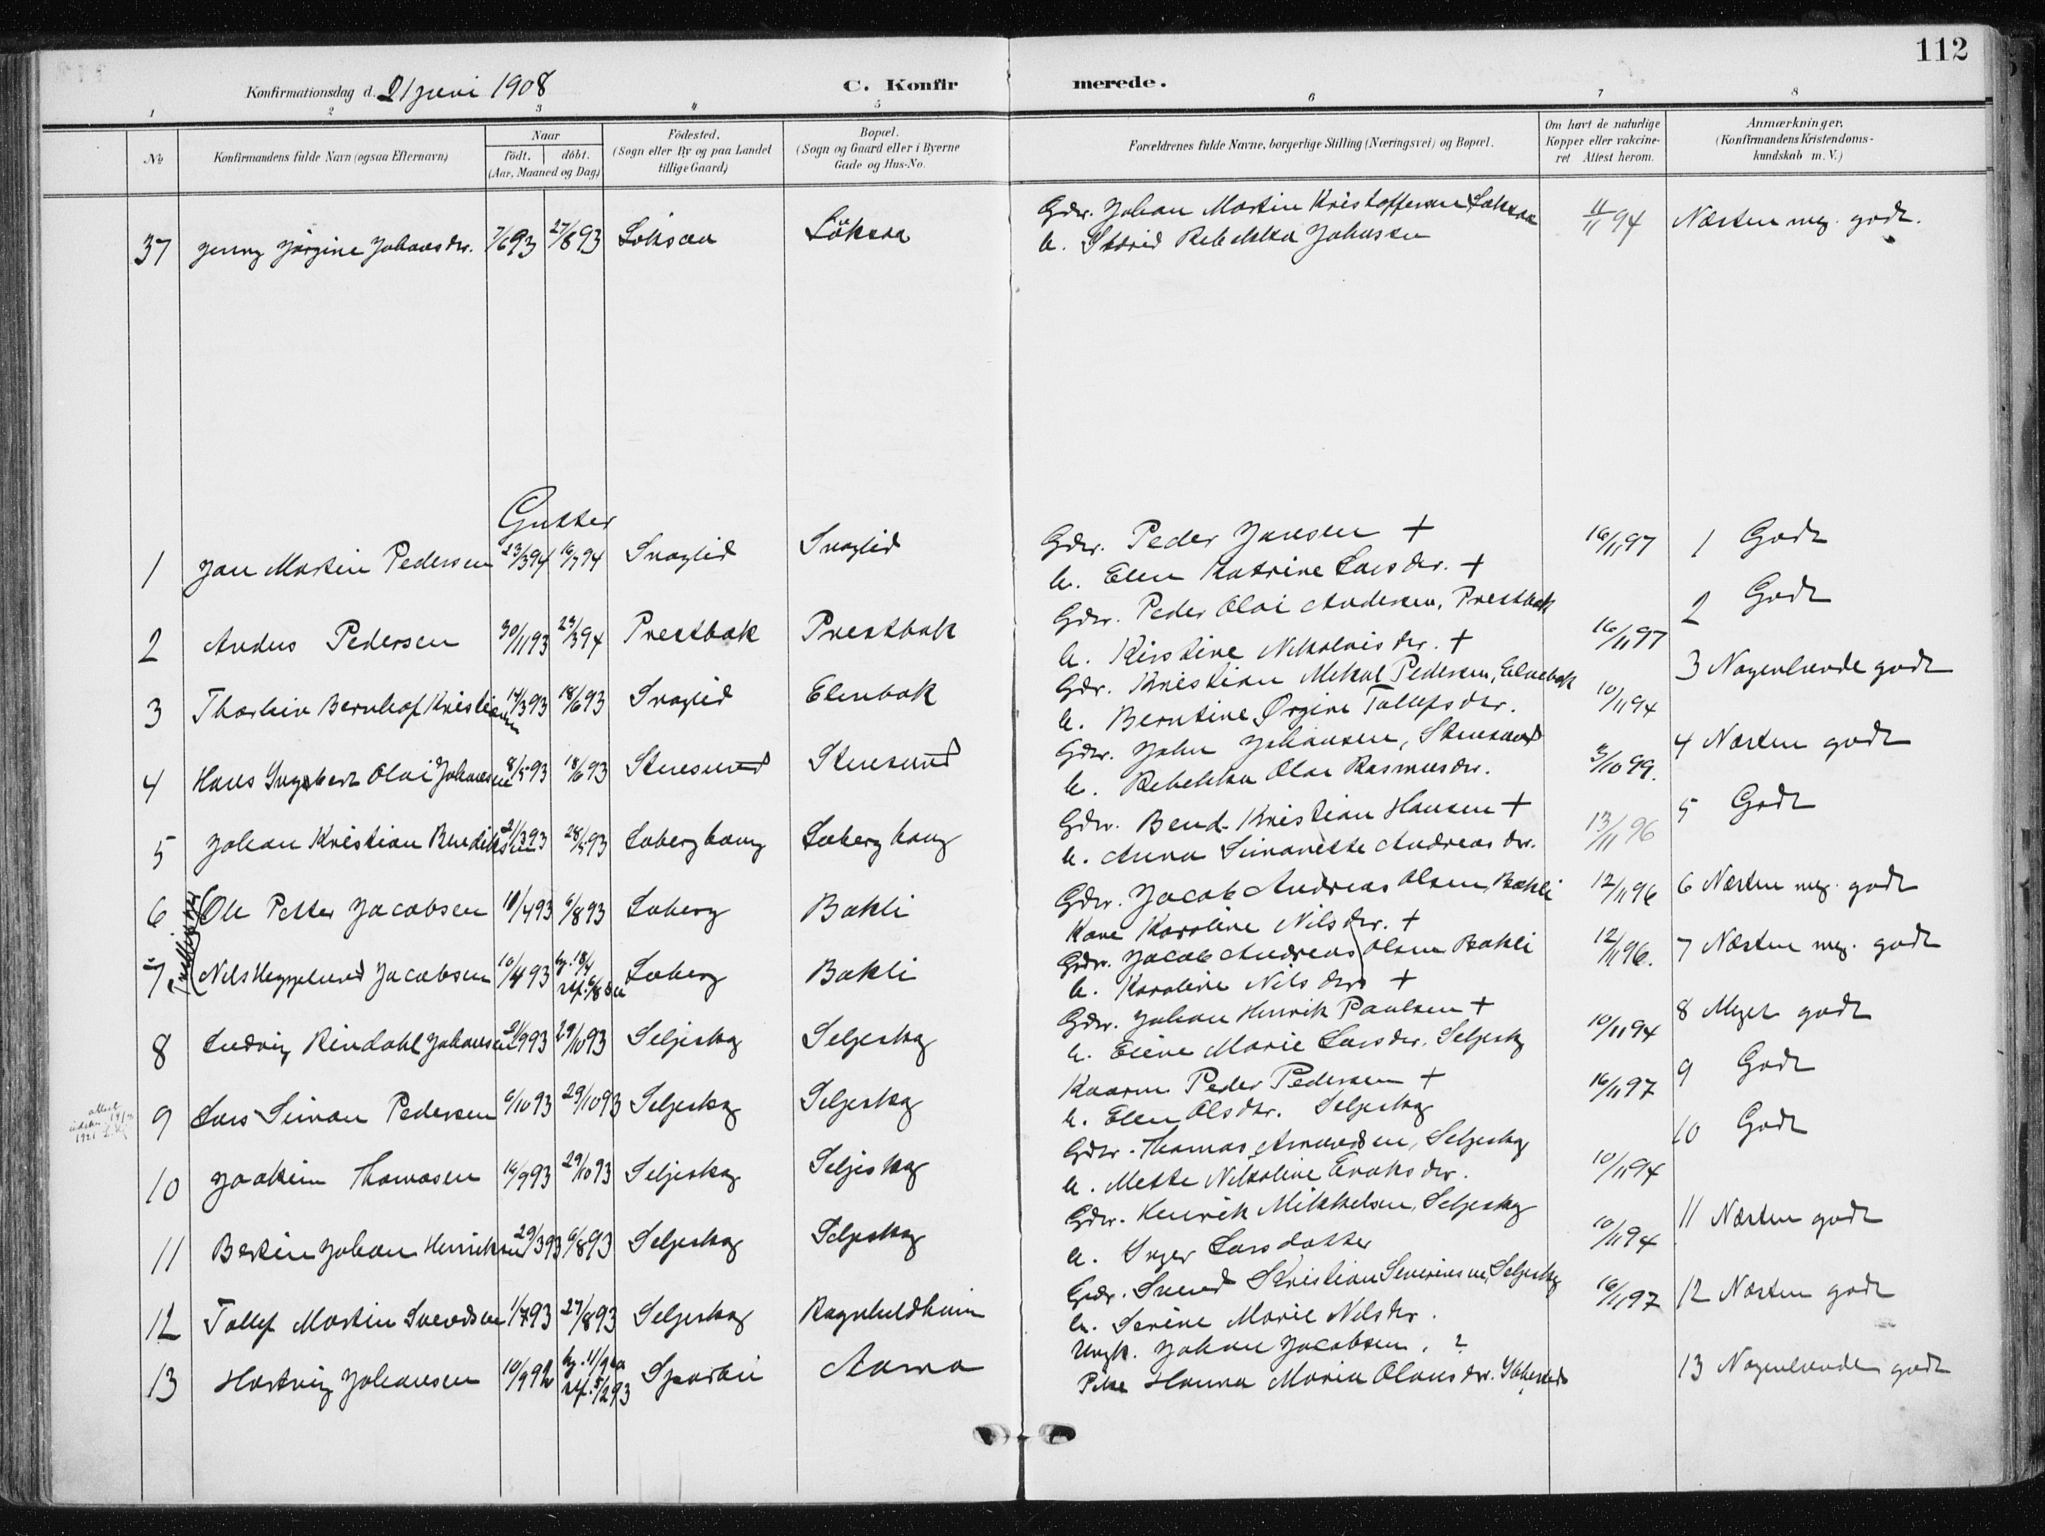 112
Konfirmationsdag d. 21 juni 1908
C. Konfirmerede.
1 2 3 4 5 6 7 8
No
Konfirmandens fulde Navn (ogsaa Efternavn)
Naar
födt. döbt.
(Aar, Maaned og Dag)
Födested.
(Sogn eller By og paa Landet
tillige Gaard)
Bopæl.
(Sogn og Gaard eller i Byerne
Gade og Hus-No.
Forældrenes fulde Navne, borgerlige Stilling (Næringsvei) og Bopæl.
Om havt de naturlige
Kopper eller vakcine-
ret Attest herom.
Anmærkninger.
(Konfirmandens Kristendoms-
kundskab m. V.)
Gdr. Johan Martin Kristoffersen Løksaa
37 Jenny Jørgine Johansdr. 7/6 93 27/8 93 Løksaa Løksaa h. Rebekka Johnsen 11/11 94 Næsten meg. godt.
Gutter
Gdr. Peder Jansen +
1 Jan Martin Pedersen 23/3 94 16/7 94 Snoglid Snoglid h. Elen Katrine Larsdr. + 16/11 97 1 Godt
Gdr. Peder Olai Andersen, Prestbak
2 Anders Pedersen 30/11 93 23/3 94 Prestbak Prestbak h. Kirstine Nikolaisdr. + 16/11 97 2 Godt
Gdr. Kristian Mikal Pedersen, Elvebak
3 Thorleiv Bernhof Kristiansen 17/3 93 18/6 93 Snoglid Elvebak h. Berntine Ørgine Tollefsdr. 10/11 94 3 Nogenlunde godt
Gdr. John Johansen, Stensund
4 Hans Ingebert Olai Johansen 8/5 93 18/6 93 Stensund Stensund h. Rebekka Olai Rasmusdr. 3/10 99. 4 Næsten godt
Gdr. Bend. Kristian Hansen +
5 Johan Kristian Bendiksen 21/3 93 28/5 93 Loberghaug Loberghaug h. Anna Simonette Andreasdr. 13/11 96 5 Godt
Gdr. Jacob Andreas Olsen, Bakli
6 Ole Petter Jacobsen 10/4 93 6/8 93 Loberg Bakli Kone Karoline Nilsdr. + 12/11 96 6 Næsten meg. godt
Tvillinger
Gdr. Jacob Andreas Olsen Bakli
7 Nils Heggelund Jacobsen 10/4 93 hj. 18/4 stf. 6/8 s.a. Loberg Bakli h. Karoline Nilsdr. + 12/11 96. 7 Næsten meg. godt
Gdr. Johan Henrik Paulsen +
8 Ludvig Rindahl Johansen 21/9 93 29/10 93 Seljeskog Seljeskog h. Eline Marie Larsdr. Seljeskog 10/11 94 8 Meget godt
Kaarm. Peder Pedersen +
9 Lars Simon Pedersen 6/10 93 29/10 93 Seljeskog Seljeskog h. Elen Olsdtr. Seljeskog 16/11 97 9 Godt
attest
1921
Gdr. Thomas Amundsen, Seljeskog
10 Joakim Thomasen 16/9 93 29/10 93 Seljeskog Seljeskog h. Mette Nikoline Enoksdr. 10/11 94 10 Godt
Gdr. Henrik Mikkelsen, Seljeskog
11 Bertin Johan Henriksen 29/3 93 6/8 93 Seljeskog Seljeskog h. Inger Larsdatter 10/11 94 11 Næsten godt
Gdr. Svend Kristian Severinsen, Seljeskog
12 Tollef Martin Svendsen 1/7 93 27/8 93 Seljeskog Ragnhildheim h. Serine Marie Nilsdr. 16/11 97 12 Næsten godt
Ungk. Johan Jacobsen. ?
13 Hartvig Johansen 10/9 92 hj. 11/9 92 stf. 5/2 93 Sparbu Aarva Pike Hanna Maria Olausdr. Ibbestad 13 Nogenlunde godt